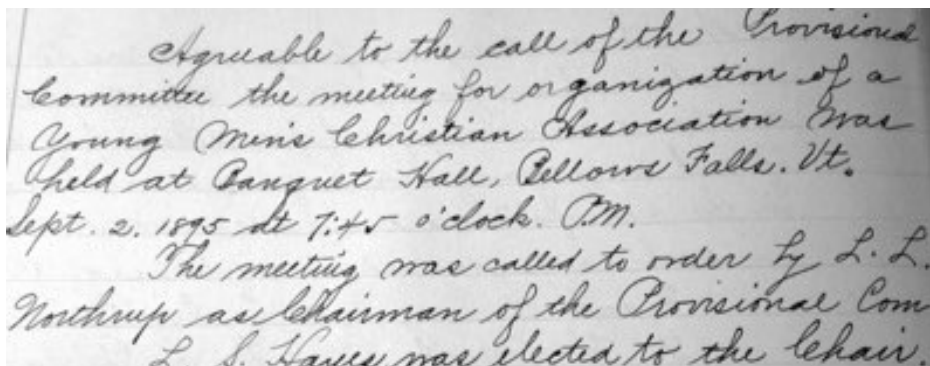 Agreeable to the call of the Provisional
Committee the meeting for organization of a
Young Men's Christian Association was
held at Banquet Hall, Bellows Falls. Vt.
Sept. 2. 1895 at 7:45 o'clock. P.M.
The meeting was called to order by L. L.
Northrup as Chairman of the Provisional Com
L. S. Hayes was elected to the Chair.